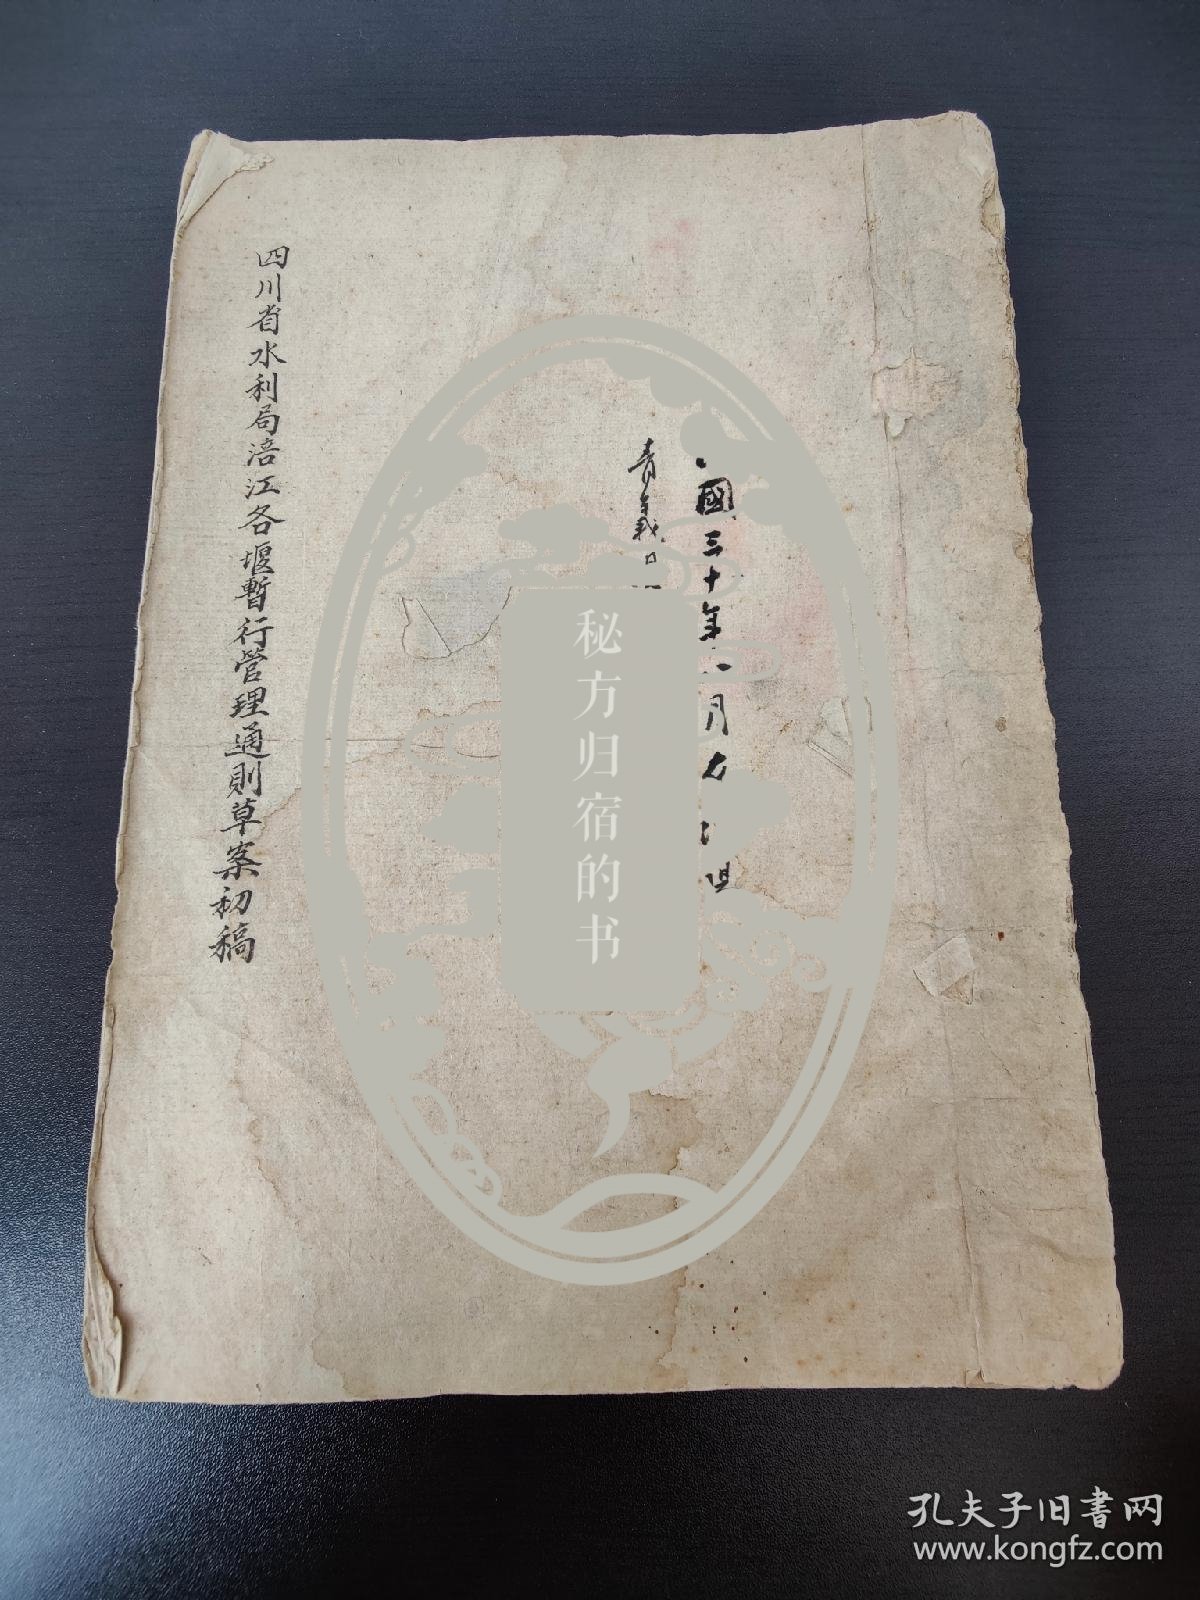 國三十年
月
青義口
四川省水利局涪江各堰暫行管理通則草案初稿
秘方归宿的书
孔夫子旧書网
www.kongfz.com